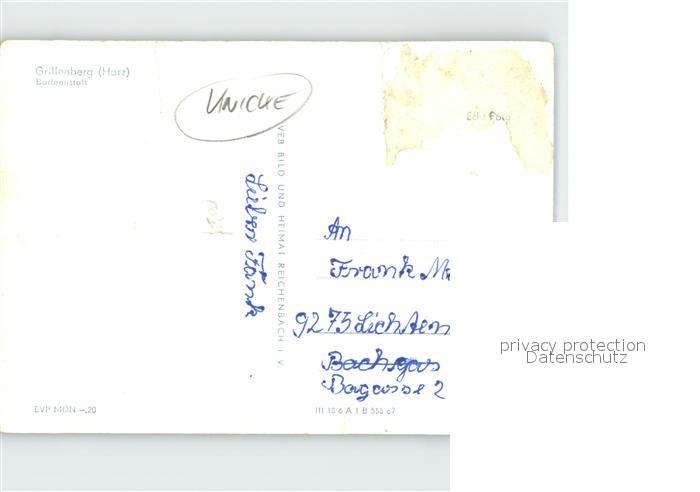 Grillenberg (Harz)
Badeanstalt
UNICKE
Echt Foto
VEB BILD UND HEIMAT REICHENBACH I V
Lieber Frank
An
Frank
9275 Lichten
Bachgas
Bagasse 2
EVP MDN -,20
III 18 6 A 1 B 555 67
privacy protection
Datenschutz